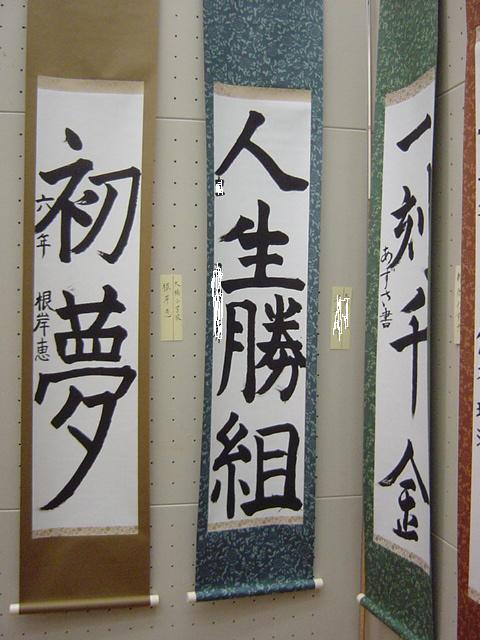 初夢
六年 根岸恵
人生勝組
一刻千金
あずさ書